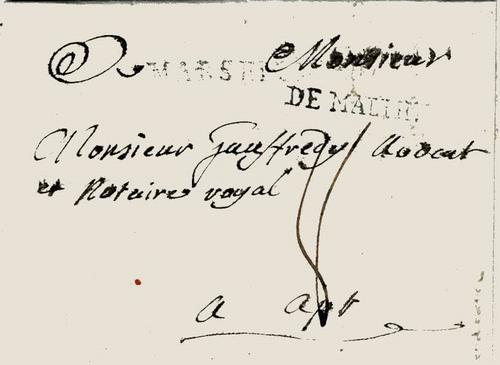 A Monsieur
DE MALTHE
Monsieur Gauffredy Avocat
et Notaire royal
a apt